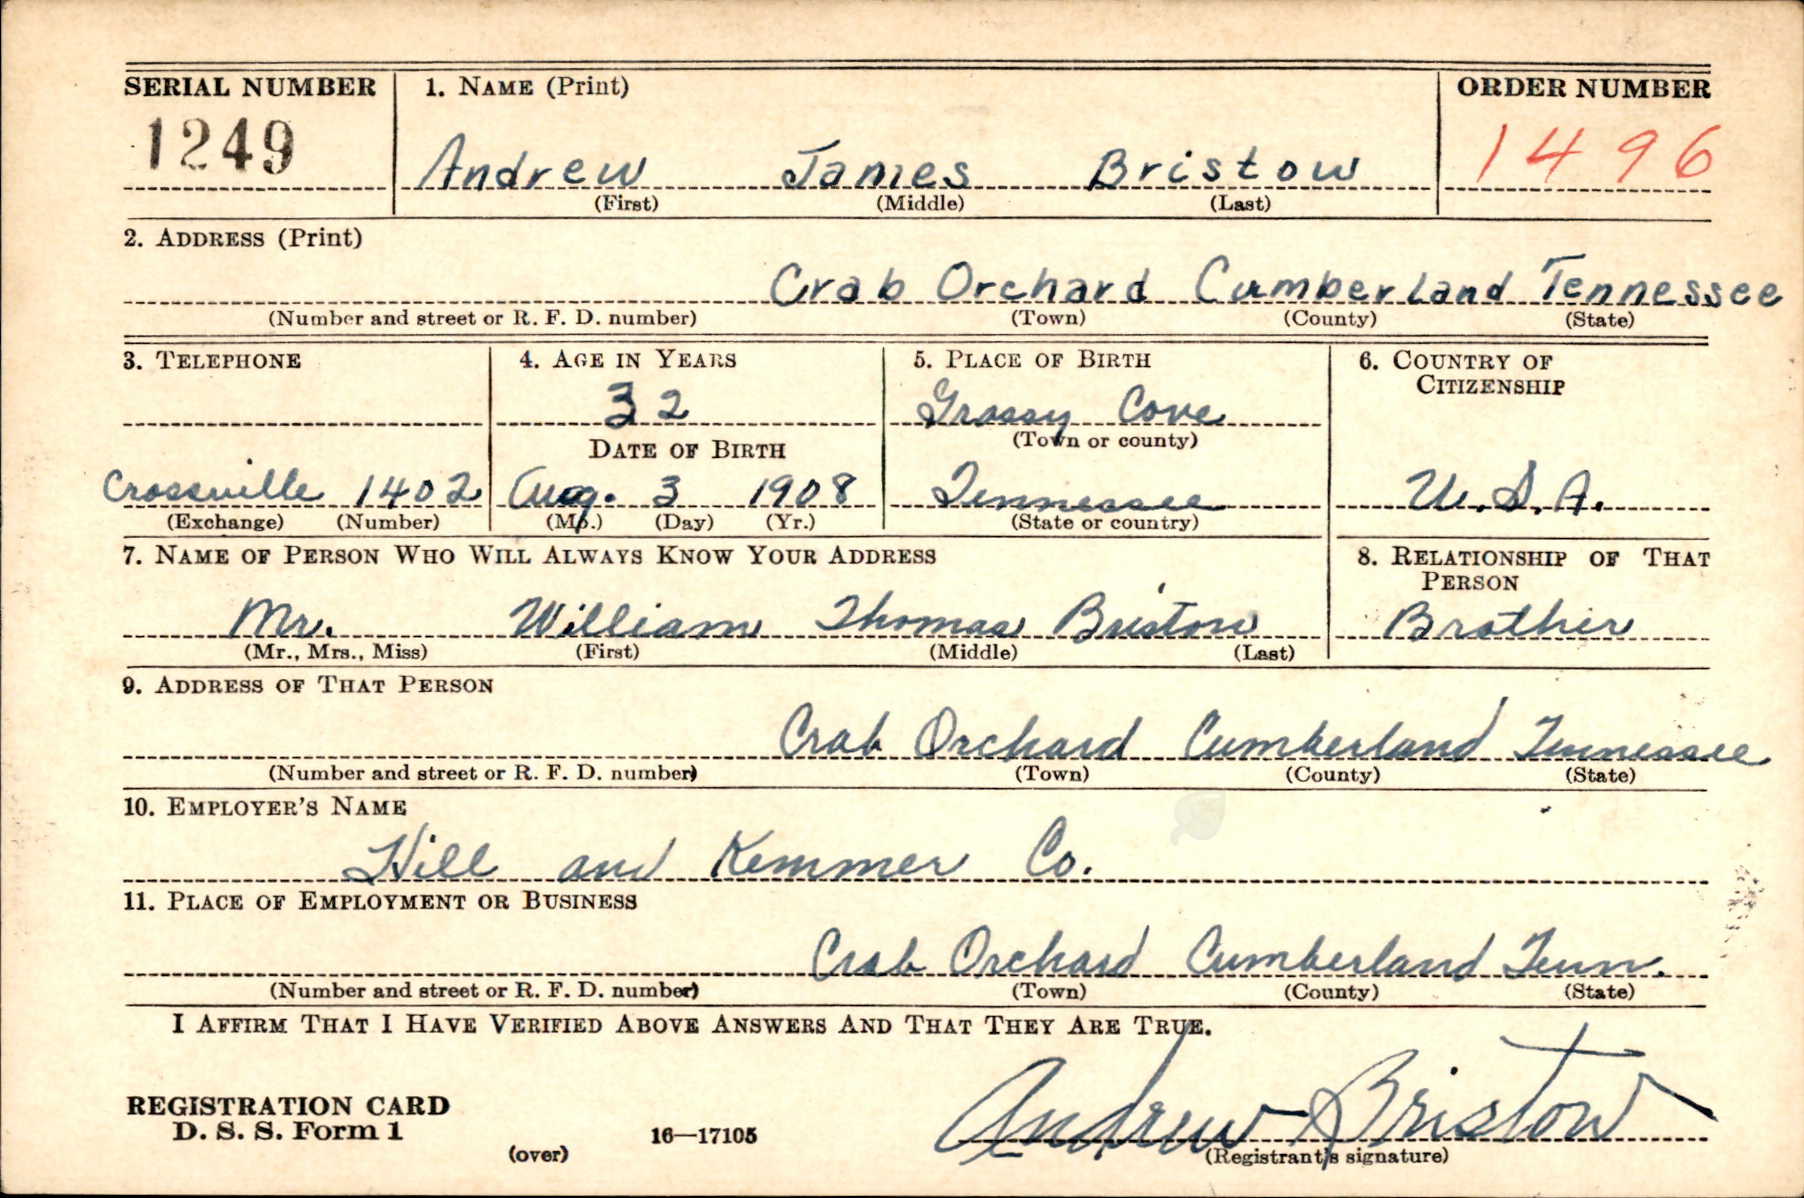 SERIAL NUMBER 1. NAME (Print) ORDER NUMBER
1249 Andrew James Bristow 1496
(First) (Middle) (Last)
2. ADDRESS (Print)
Crab Orchard Cumberland Tennessee
(Number and street or R. F. D. number) (Town) (County) (State)
3. TELEPHONE 4. AGE IN YEARS 5. PLACE OF BIRTH 6. COUNTRY OF
CITIZENSHIP
32 Grassy Cove
DATE OF BIRTH (Town or county)
Crossville 1402 Aug. 3 1908 Tennessee U.S.A.
(Exchange) (Number) (Mo.) (Day) (Yr.) (State or country)
7. NAME OF PERSON WHO WILL ALWAYS KNOW YOUR ADDRESS 8. RELATIONSHIP OF THAT
PERSON
Mr. William Thomas Bristow Brother
(Mr., Mrs., Miss) (First) (Middle) (Last)
9. ADDRESS OF THAT PERSON
Crab Orchard Cumberland Tennessee
(Number and street or R. F. D. number) (Town) (County) (State)
10. EMPLOYER'S NAME
Hill and Kemmer Co.
11. PLACE OF EMPLOYMENT OR BUSINESS
Crab Orchard Cumberland Tenn.
(Number and street or R. F. D. number) (Town) (County) (State)
I AFFIRM THAT I HAVE VERIFIED ABOVE ANSWERS AND THAT THEY ARE TRUE.
REGISTRATION CARD
D. S. S. Form 1 16—17105 Andrew Bristow
(over) (Registrant's signature)